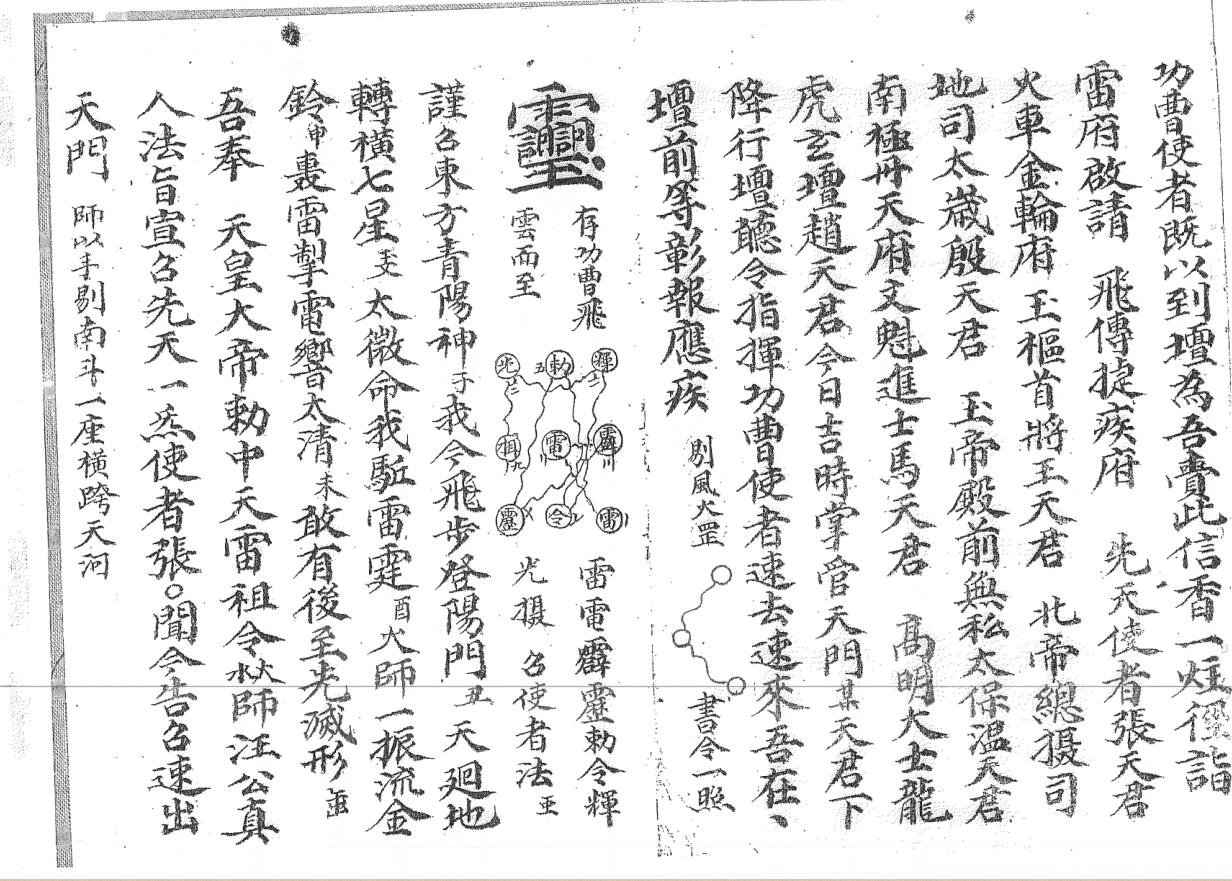 功曹使者既以到壇為吾賫此信香一炷徑詣
雷府啟請 飛傳捷疾府 先天使者張天君
火車金輪府 玉樞首將王天君 北帝總摄司
地司太歲殷天君 玉帝殿前無私太保温天君
南極丹天府文魁進士馬天君 高明大士龍
虎玄壇趙天君今日吉時掌管天門某天君下
降行壇聽令指揮功曹使者速去速來吾在丶
壇前等彰報應疾 剔風火罡 書令一照
存功曹飛
雲而至
雷雷霹靂勅令輝
光摄 召使者法
輝 勅 北
靂 雷
雷 令 靂
謹召東方青陽神子我令飛步登陽門丑天廻地
轉横七星 太微命我駈雷霆酉火師一振流金
鈴申轟雷掣電響太清未敢有後至先滅形
吾奉 天皇大帝勅中天雷祖令 師汪公真
人法旨宣召先天一炁使者張○聞令告召速出
天門 師以手剔南斗一座横跨天河